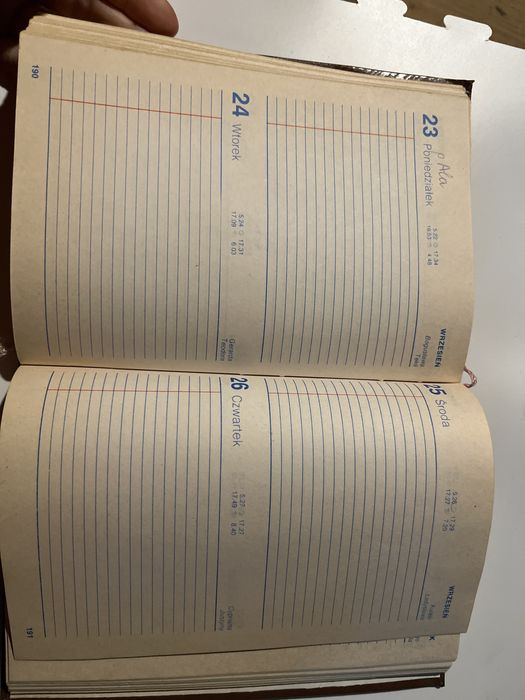 23 Poniedziałek
p Ala
5.22 17.34
16.53 4.48
WRZESIEŃ
Bogusława
Tekli
24 Wtorek
5.24 17.31
17.09 6.03
Gerarda
Teodora
190
25 Środa
5.26 17.29
17.27 7.20
WRZESIEŃ
Ładysława
26 Czwartek
5.27 17.27
17.49 8.40
Cypriana
Justyny
191
K